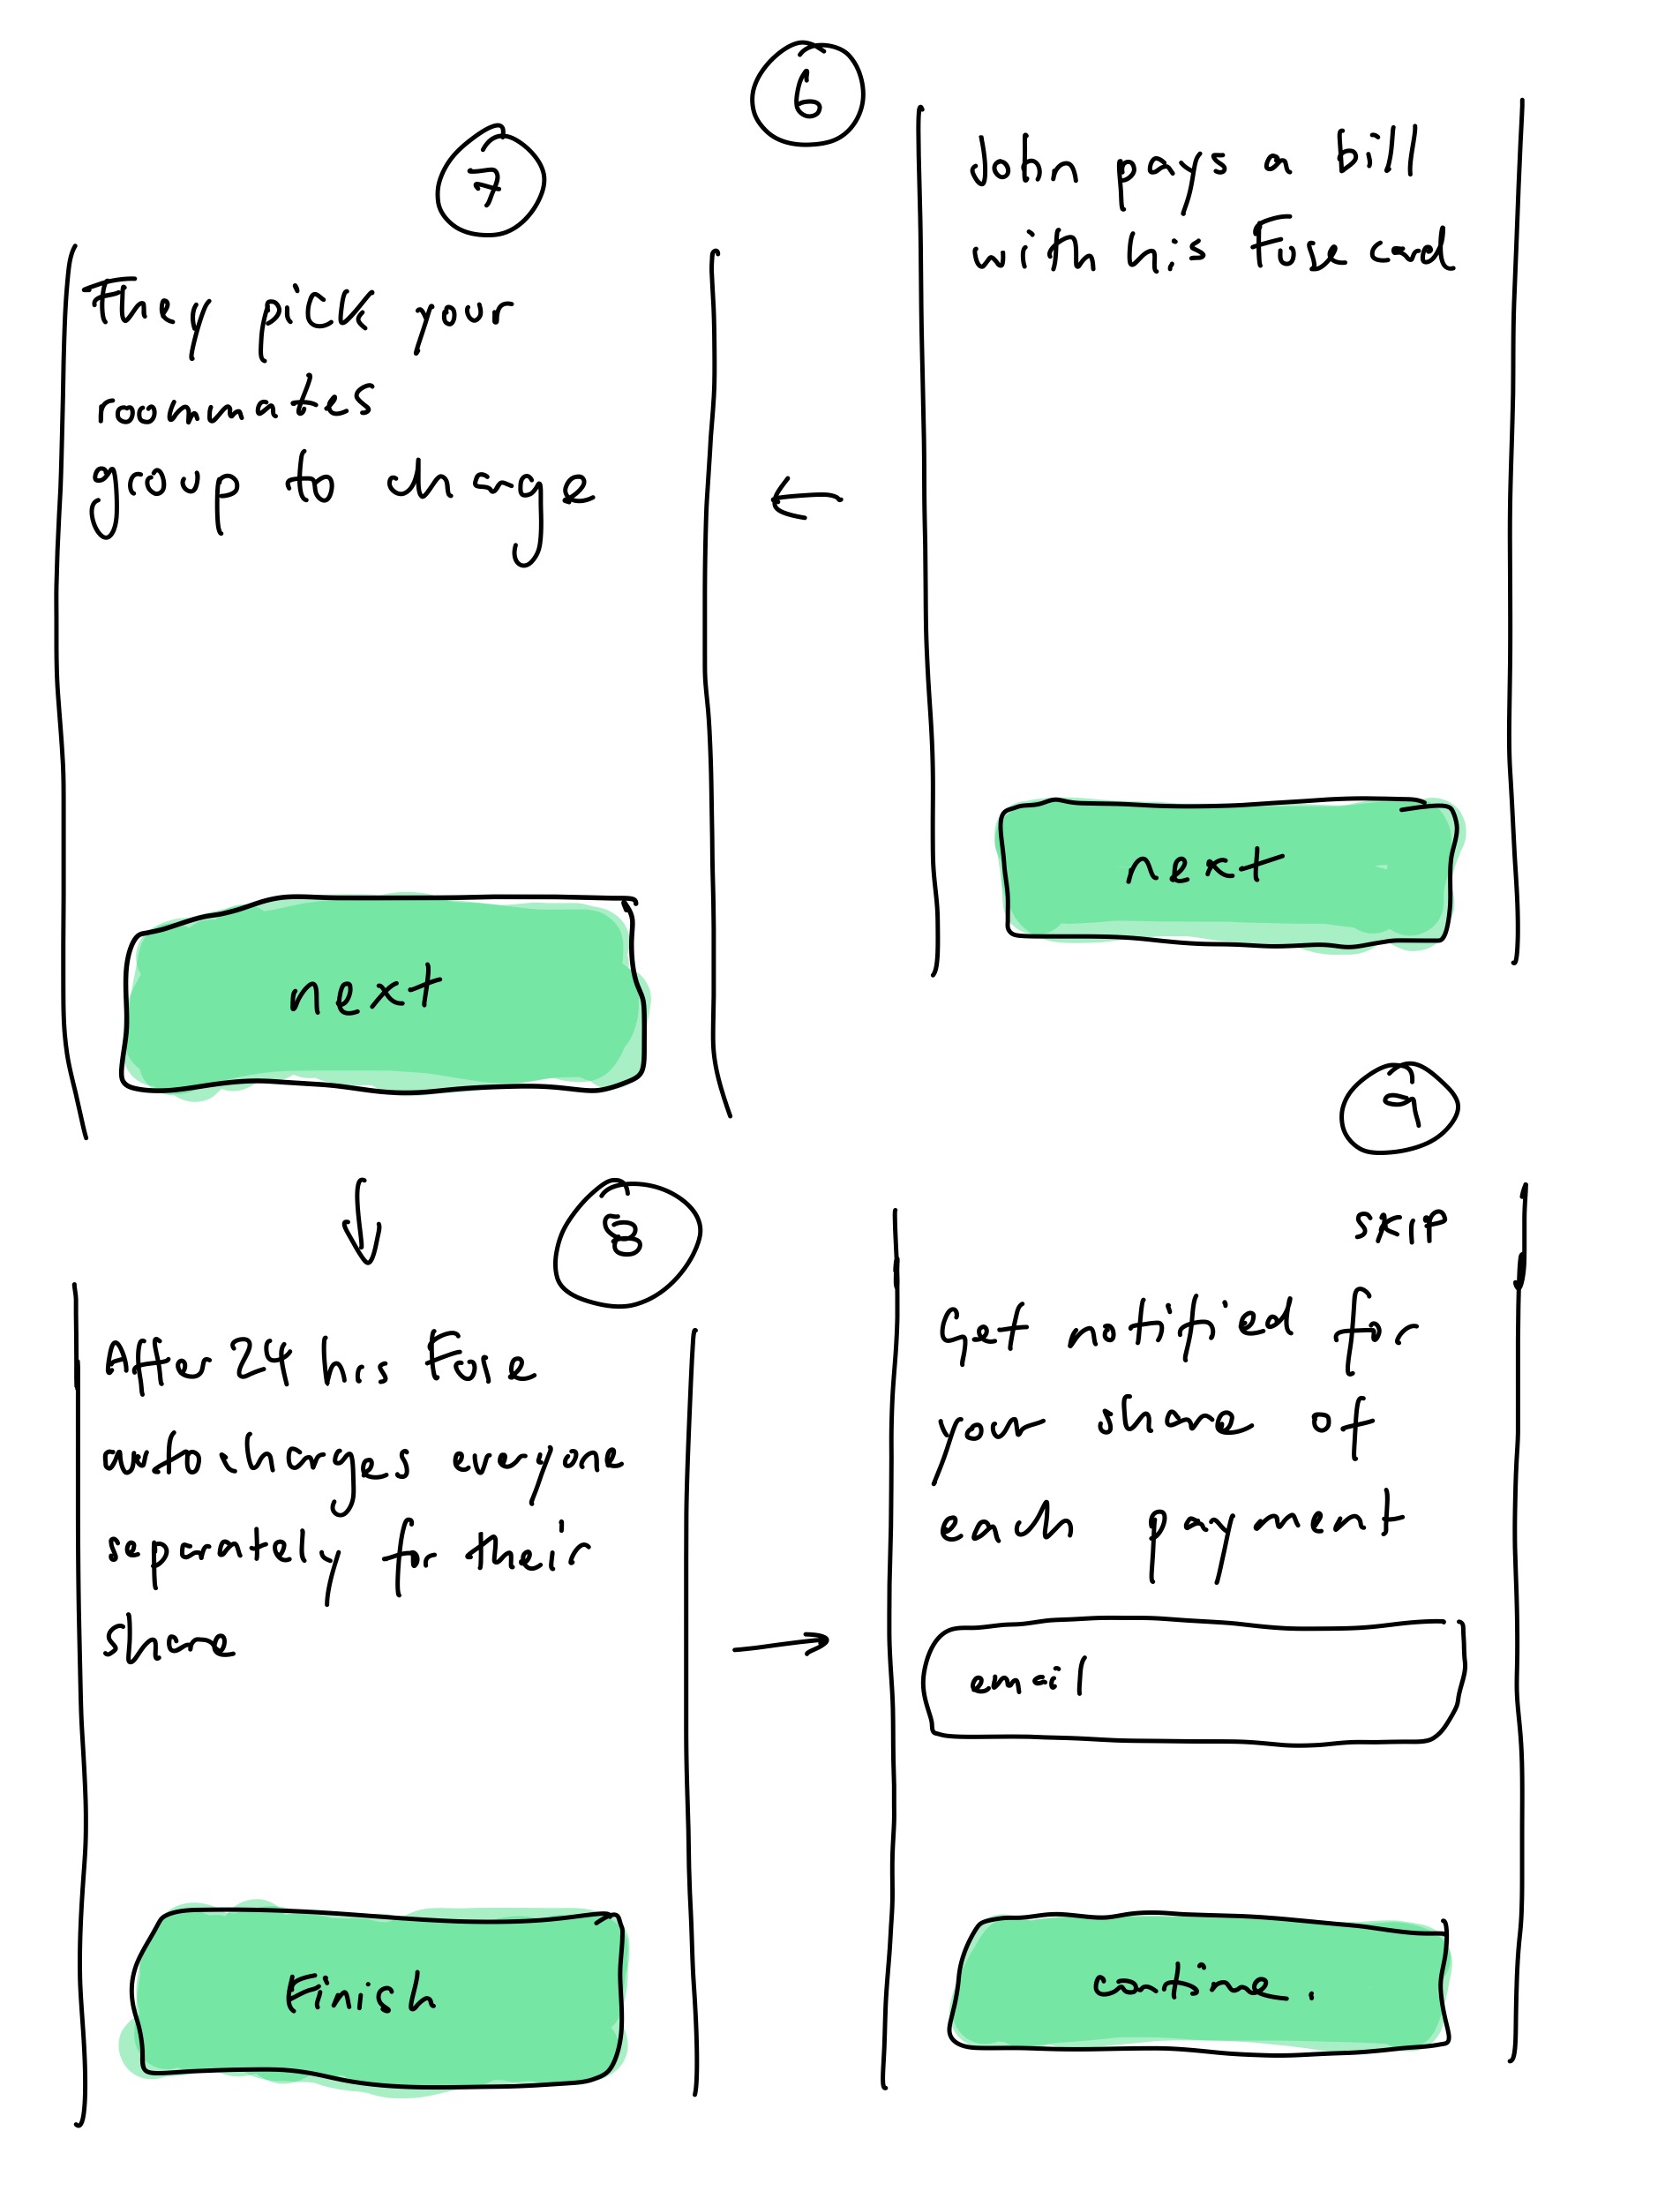 6
John pays a bill
with his Fuse card
next
7
They pick your
roommates
group to charge
next
8
After 24 hrs Fuse
auto charges everyone
separately for their
share
Finish
9
SKIP
Get notified for
your share of
each payment
email
continue.